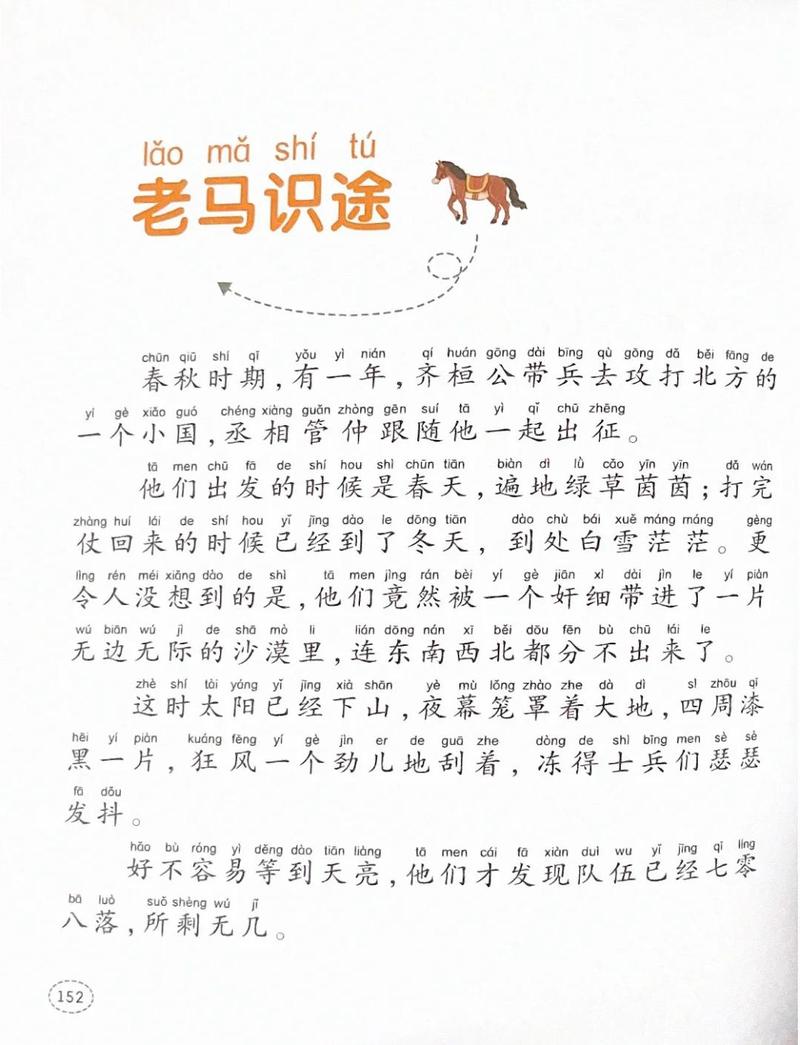 lǎo mǎ shí tú
老马识途
chūn qiū shí qī yǒu yì nián qí huán gōng dài bīng qù gōng dǎ běi fāng de
春秋时期,有一年,齐桓公带兵去攻打北方的
yí gè xiǎo guó chéng xiàng guǎn zhòng gēn suí tā yì qǐ chū zhēng
一个小国,丞相管仲跟随他一起出征。
tā men chū fā de shí hou shì chūn tiān biàn dì lǜ cǎo yīn yīn dǎ wán
他们出发的时候是春天,遍地绿草茵茵;打完
zhàng huí lái de shí hou yǐ jīng dào le dōng tiān dào chù bái xuě máng máng gèng
仗回来的时候已经到了冬天,到处白雪茫茫。更
lìng rén méi xiǎng dào de shì tā men jìng rán bèi yí gè jiān xì dài jìn le yí piàn
令人没想到的是,他们竟然被一个奸细带进了一片
wú biān wú jì de shā mò li lián dōng nán xī běi dōu fēn bù chū lái le
无边无际的沙漠里,连东南西北都分不出来了。
zhè shí tài yáng yǐ jīng xià shān yè mù lǒng zhào zhe dà dì sì zhōu qī
这时太阳已经下山,夜幕笼罩着大地,四周漆
hēi yí piàn kuáng fēng yí gè jìn er de guā zhe dòng de shì bīng men sè sè
黑一片,狂风一个劲儿地刮着,冻得士兵们瑟瑟
fā dǒu
发抖。
hǎo bù róng yì děng dào tiān liàng tā men cái fā xiàn duì wu yǐ jīng qī líng
好不容易等到天亮,他们才发现队伍已经七零
bā luò suǒ shèng wú jǐ
八落,所剩无几。
152